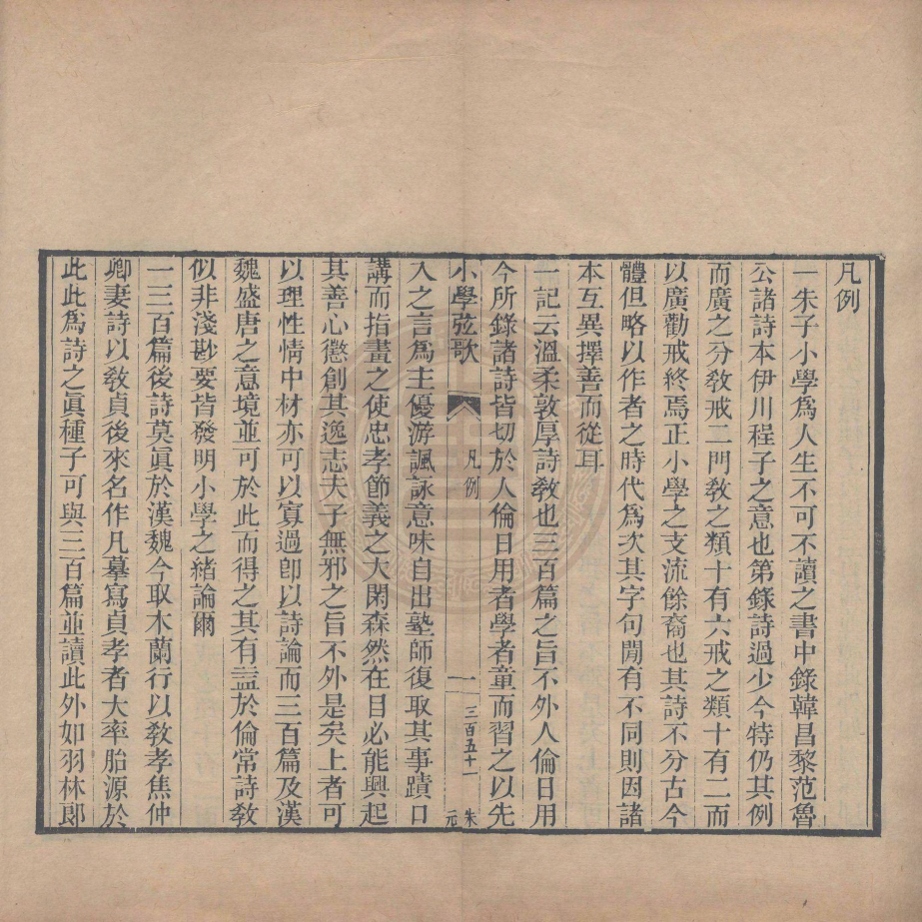 凡例
一朱子小學爲人生不可不讀之書中錄韓昌黎范魯
公諸詩本伊川程子之意也第錄詩過少今特仍其例
而廣之分敎戒二門敎之類十有六戒之類十有二而
以廣勸戒終焉正小學之支流餘裔也其詩不分古今
體但略以作者之時代爲次其字句閒有不同則因諸
本互異擇善而從耳
一記云溫柔敦厚詩敎也三百篇之旨不外人倫日用
今所錄諸詩皆切於人倫日用者學者童而習之以先
小學弦歌 凡例 一 三百五十一 朱元
入之言爲主優游諷詠意味自出塾師復取其事蹟口
講而指畫之使忠孝節義之大閑森然在目必能興起
其善心懲創其逸志夫子無邪之旨不外是矣上者可
以理性情中材亦可以寡過卽以詩論而三百篇及漢
魏盛唐之意境並可於此而得之其有益於倫常詩敎
似非淺尠要皆發明小學之緒論爾
一三百篇後詩莫眞於漢魏今取木蘭行以敎孝焦仲
卿妻詩以敎貞後來名作凡摹寫貞孝者大率胎源於
此此爲詩之眞種子可與三百篇並讀此外如羽林郞